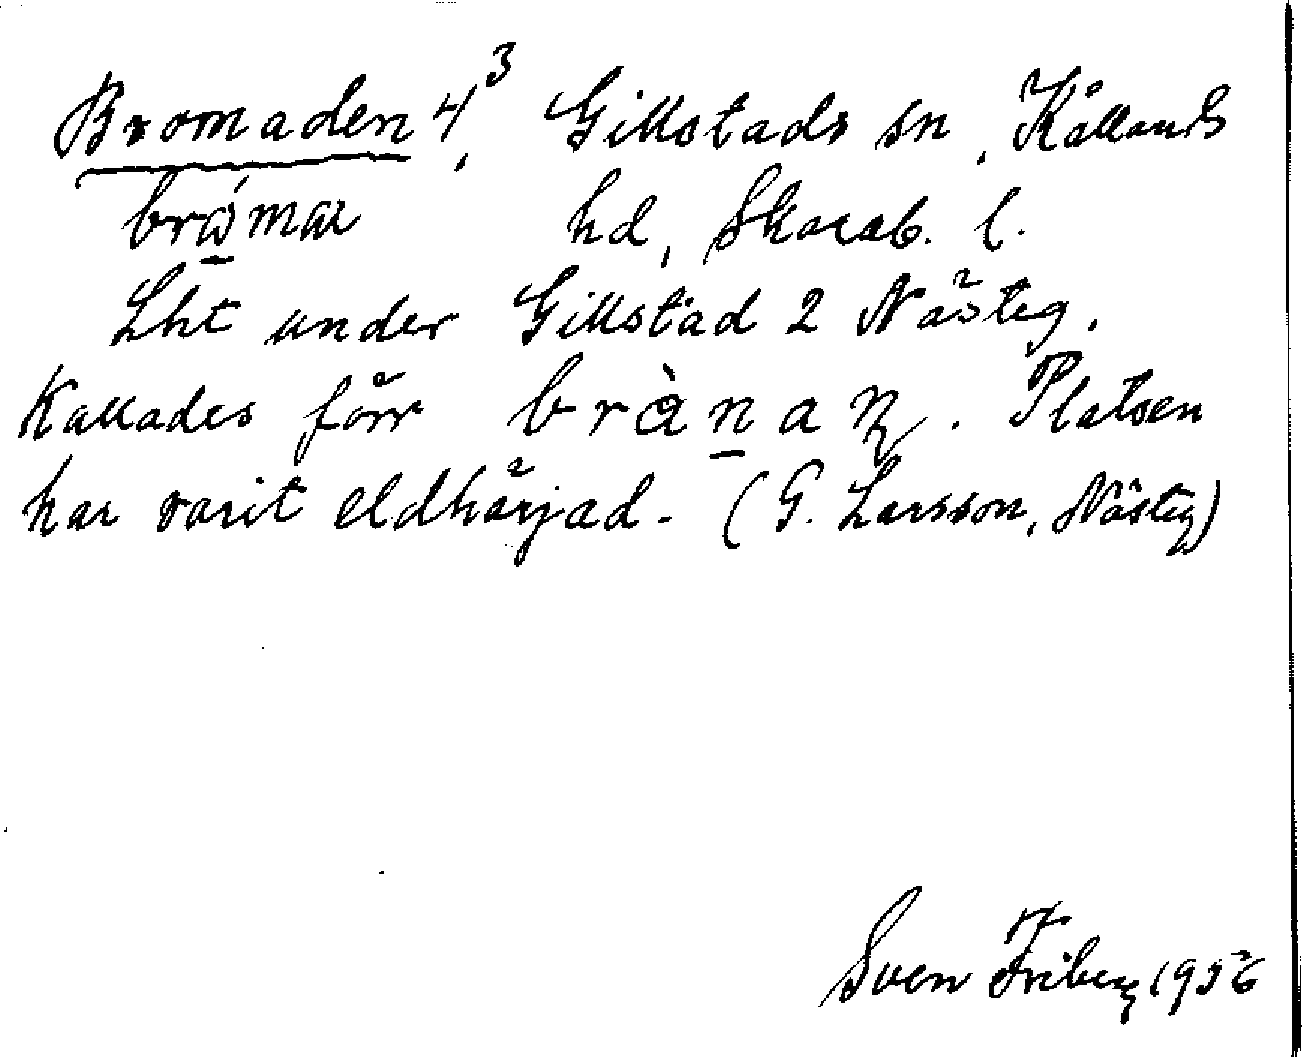 Bromaden 4³, Gillstads sn, Kållands
hd, Skarab. l.
Lht under Gillstad 2 Nästeg.
Kallades förr brànaɳ. Platsen
har varit eldhärjad. (G. Larsson, Nästeg)
Sven Friberg 1956